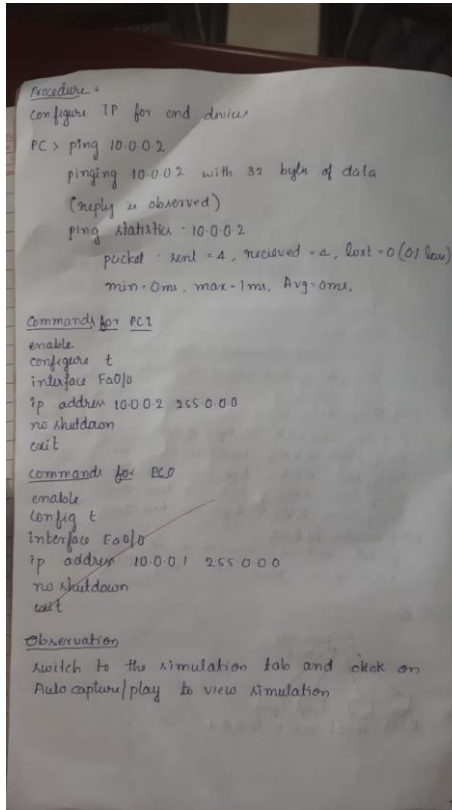 Procedure :
configure IP for end devices
PC > ping 10.0.0.2
pinging 10.0.0.2 with 32 bytes of data
(reply is observed)
ping statistics : 10.0.0.2
packet : sent = 4, recieved = 4, lost = 0 (0% loss)
min = 0ms, max = 1ms, Avg = 0ms,
Commands for PC1
enable
configure t
interface Fa0/0
ip address 10.0.0.2 255.0.0.0
no shutdown
exit
commands for PC0
enable
config t
interface Fa0/0
ip address 10.0.0.1 255.0.0.0
no shutdown
exit
Observation
switch to the simulation tab and click on
Auto capture/play to view simulation